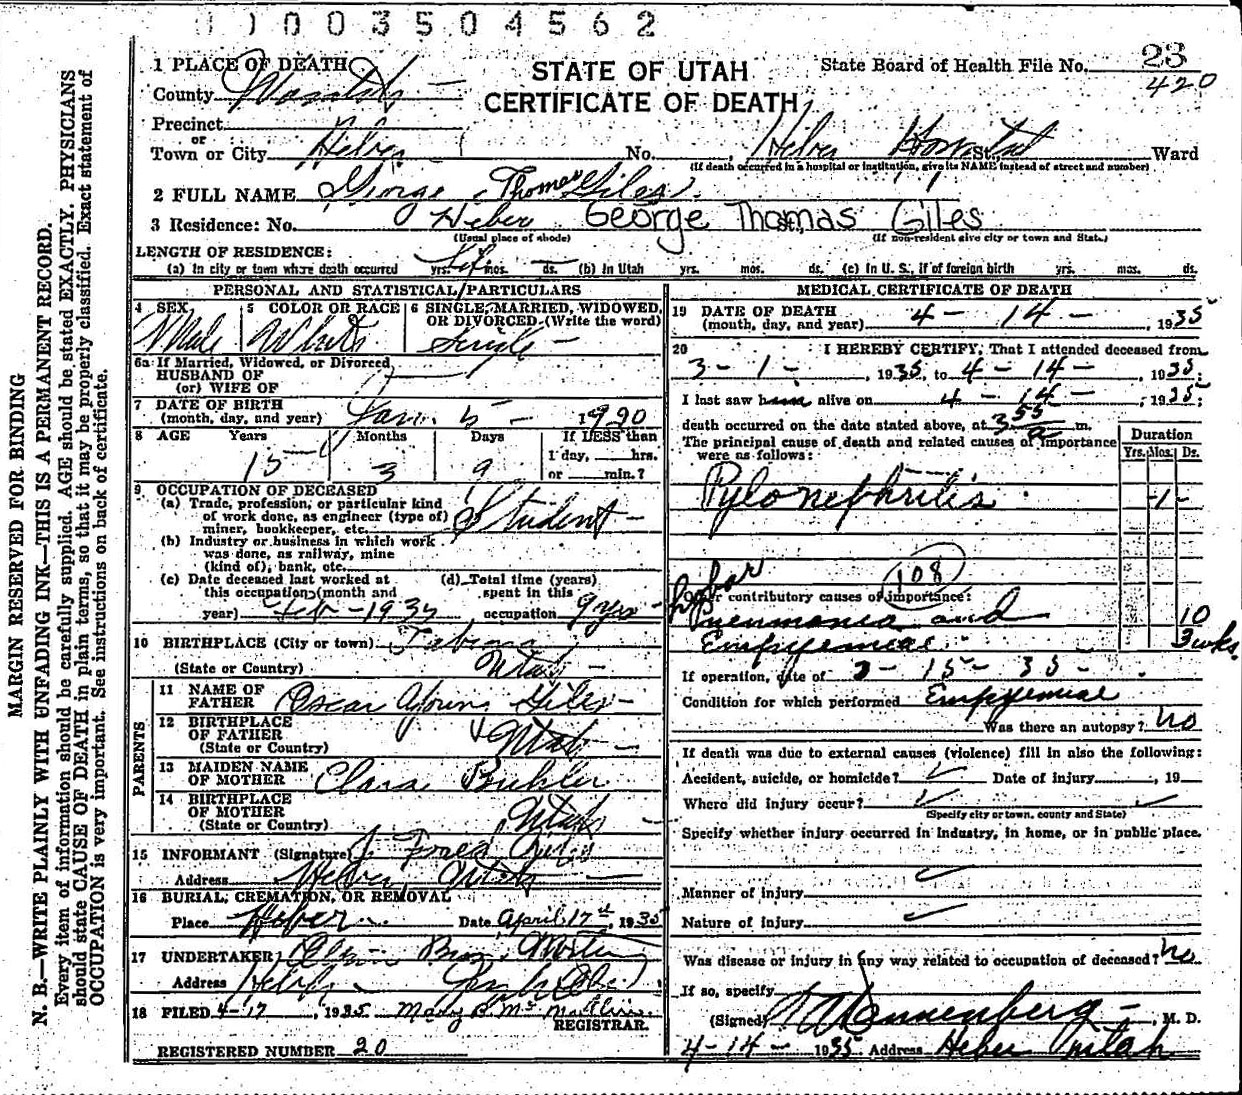 0 0 0 3 5 0 4 5 6 2
MARGIN RESERVED FOR BINDING
N. B.—WRITE PLAINLY WITH UNFADING INK—THIS IS A PERMANENT RECORD.
Every item of information should be carefully supplied. AGE should be stated EXACTLY. PHYSICIANS
should state CAUSE OF DEATH in plain terms, so that it may be properly classified. Exact statement of
OCCUPATION is very important. See instructions on back of certificate.
STATE OF UTAH
CERTIFICATE OF DEATH
State Board of Health File No. 23
420
1 PLACE OF DEATH
County Wasatch
Precinct
or
Town or City Heber No. , Heber Hospital St., Ward
(If death occurred in a hospital or institution, give its NAME instead of street and number)
2 FULL NAME George Thomas Giles
3 Residence: No. Heber George Thomas Giles
(Usual place of abode) (If non-resident give city or town and State)
LENGTH OF RESIDENCE:
(a) In city or town where death occurred yrs. Life mos. ds. (b) In Utah yrs. mos. ds. (c) In U. S., if of foreign birth yrs. mos. ds.
PERSONAL AND STATISTICAL PARTICULARS
4 SEX Male
5 COLOR OR RACE White
6 SINGLE, MARRIED, WIDOWED, OR DIVORCED (Write the word) Single
6a If Married, Widowed, or Divorced
HUSBAND OF
(or) WIFE OF
7 DATE OF BIRTH
(month, day, and year) Jan. 5 - 1920
8 AGE Years Months Days If LESS than
15 3 9 1 day, hrs.
or min.?
9 OCCUPATION OF DECEASED
(a) Trade, profession, or particular kind
of work done, as engineer (type of)
miner, bookkeeper, etc. Student
(b) Industry or business in which work
was done, as railway, mine
(kind of), bank, etc.
(c) Date deceased last worked at
this occupation (month and
year) Feb - 1935
(d) Total time (years)
spent in this
occupation 9 yrs
10 BIRTHPLACE (City or town) Tabiona
(State or Country) Utah
PARENTS
11 NAME OF
FATHER Oscar Young Giles
12 BIRTHPLACE
OF FATHER
(State or Country) Utah
13 MAIDEN NAME
OF MOTHER Clara
14 BIRTHPLACE
OF MOTHER
(State or Country) Utah
15 INFORMANT (Signature) J.
Address Heber Utah
16 BURIAL, CREMATION, OR REMOVAL
Place Heber Date April 17th, 1935
17 UNDERTAKER Olson Bros.
Address Heber
18 FILED 4-17, 1935 Mary B.
REGISTRAR.
REGISTERED NUMBER 20
MEDICAL CERTIFICATE OF DEATH
19 DATE OF DEATH
(month, day, and year) 4 - 14 - , 1935
20 I HEREBY CERTIFY, That I attended deceased from
3 - 1 - , 1935, to 4 - 14 - , 1935;
I last saw him alive on 4 - 14 - , 1935;
death occurred on the date stated above, at 3 55 a m.
The principal cause of death and related causes of importance
were as follows:
Duration
Yrs. Mos. Ds.
Pylonephritis -1-
108
Other contributory causes of importance:
Lobar
Pneumonia and 10
Empyemiae 3 wks.
If operation, date of 3 - 15 - 35 -
Condition for which performed Empyemiae
Was there an autopsy? no
If death was due to external causes (violence) fill in also the following:
Accident, suicide, or homicide? ✓ Date of injury , 19
Where did injury occur? ✓
(Specify city or town, county and State)
Specify whether injury occurred in industry, in home, or in public place.
✓
Manner of injury
Nature of injury ✓
Was disease or injury in any way related to occupation of deceased? no
If so, specify
(Signed) Dannenberg , M. D.
4-14- 1935 Address Heber Utah